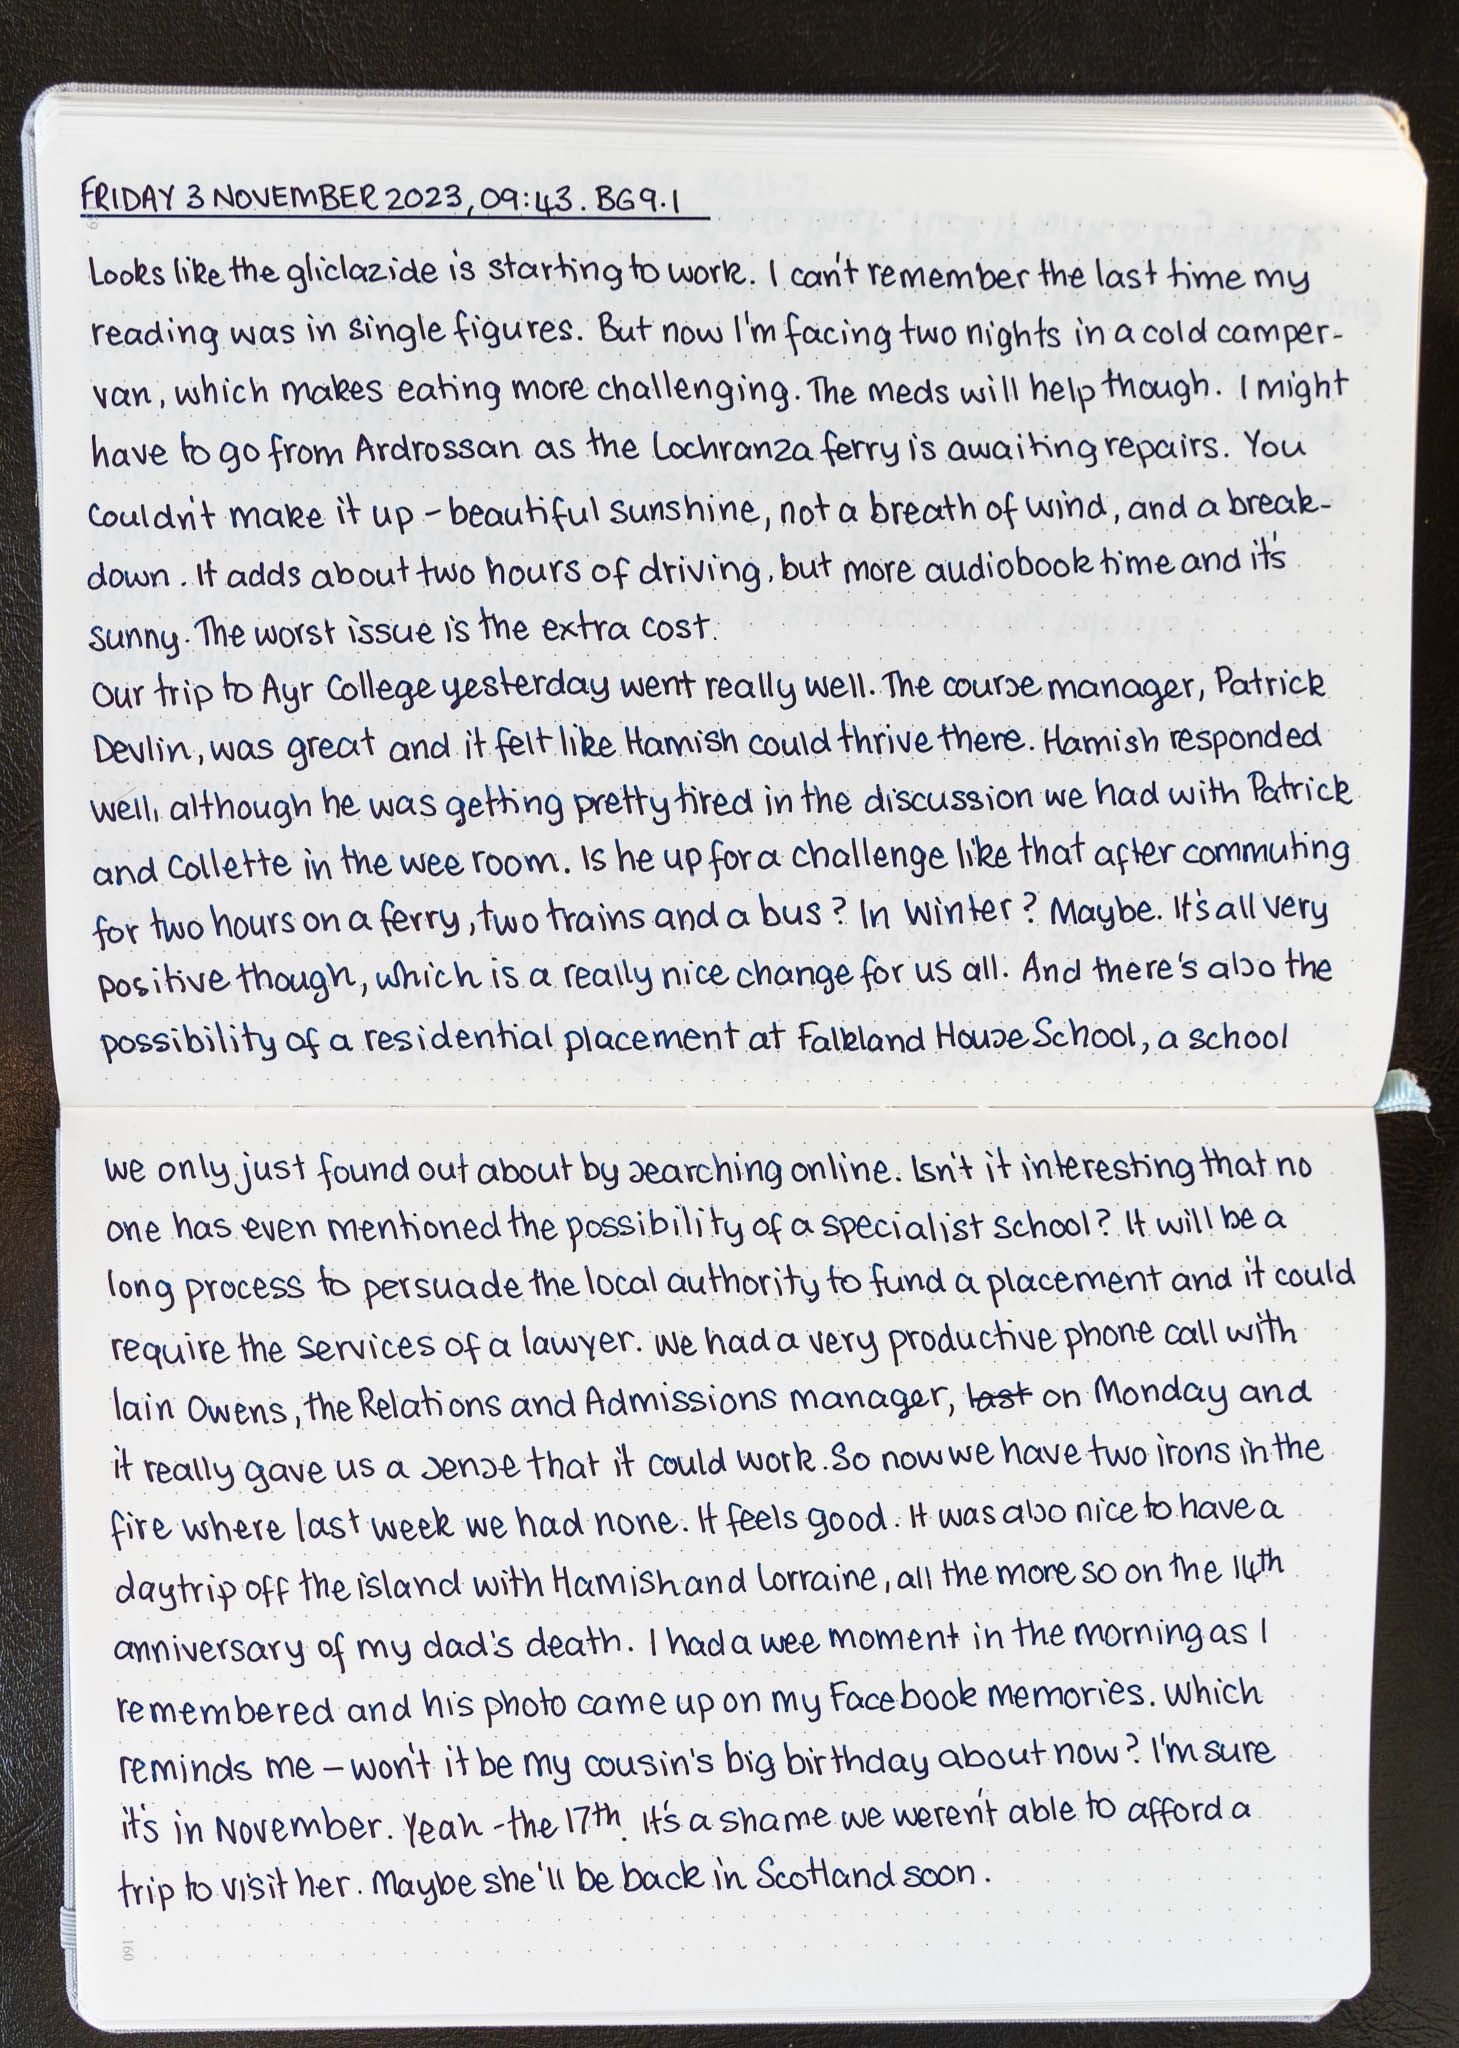 FRIDAY 3 NOVEMBER 2023, 09:43. BG9.1
Looks like the gliclazide is starting to work. I can't remember the last time my
reading was in single figures. But now I'm facing two nights in a cold camper-
van, which makes eating more challenging. The meds will help though. I might
have to go from Ardrossan as the Lochranza ferry is awaiting repairs. You
couldn't make it up – beautiful sunshine, not a breath of wind, and a break-
down. It adds about two hours of driving, but more audiobook time and it's
sunny. The worst issue is the extra cost.
Our trip to Ayr College yesterday went really well. The course manager, Patrick
Devlin, was great and it felt like Hamish could thrive there. Hamish responded
well, although he was getting pretty tired in the discussion we had with Patrick
and Collette in the wee room. Is he up for a challenge like that after commuting
for two hours on a ferry, two trains and a bus? In Winter? Maybe. It's all very
positive though, which is a really nice change for us all. And there's also the
possibility of a residential placement at Falkland House School, a school
we only just found out about by searching online. Isn't it interesting that no
one has even mentioned the possibility of a specialist school? It will be a
long process to persuade the local authority to fund a placement and it could
require the services of a lawyer. We had a very productive phone call with
Iain Owens, the Relations and Admissions manager, last on Monday and
it really gave us a sense that it could work. So now we have two irons in the
fire where last week we had none. It feels good. It was also nice to have a
daytrip off the island with Hamish and Lorraine, all the more so on the 14th
anniversary of my dad's death. I had a wee moment in the morning as I
remembered and his photo came up on my Facebook memories. Which
reminds me – won't it be my cousin's big birthday about now? I'm sure
it's in November. Yeah – the 17th. It's a shame we weren't able to afford a
trip to visit her. Maybe she'll be back in Scotland soon.
160